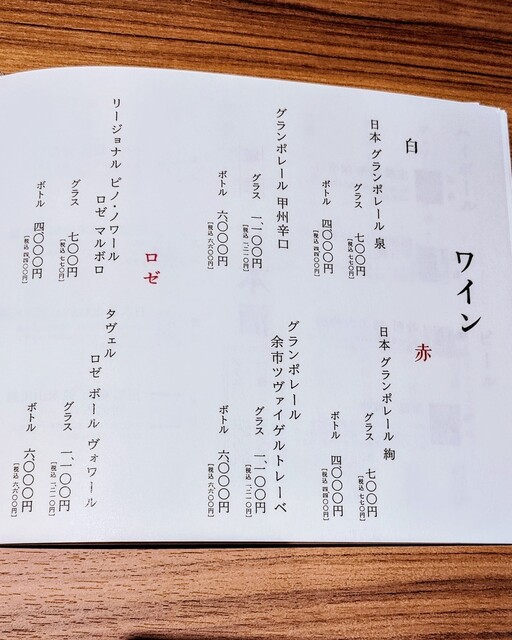 ワイン
白
日本 グランポレール 泉
グラス 七〇〇円
[税込 七七〇円]
ボトル 四〇〇〇円
[税込 四四〇〇円]
グランポレール 甲州辛口
グラス 一、一〇〇円
[税込 一、二一〇円]
ボトル 六〇〇〇円
[税込 六六〇〇円]
赤
日本 グランポレール 絢
グラス 七〇〇円
[税込 七七〇円]
ボトル 四〇〇〇円
[税込 四四〇〇円]
グランポレール
余市ツヴァイゲルトレーベ
グラス 一、一〇〇円
[税込 一、二一〇円]
ボトル 六〇〇〇円
[税込 六六〇〇円]
ロゼ
リージョナル ピノ・ノワール
ロゼ マルボロ
グラス 七〇〇円
[税込 七七〇円]
ボトル 四〇〇〇円
[税込 四四〇〇円]
タヴェル
ロゼ ボール ヴォワール
グラス 一、一〇〇円
[税込 一、二一〇円]
ボトル 六〇〇〇円
[税込 六六〇〇円]